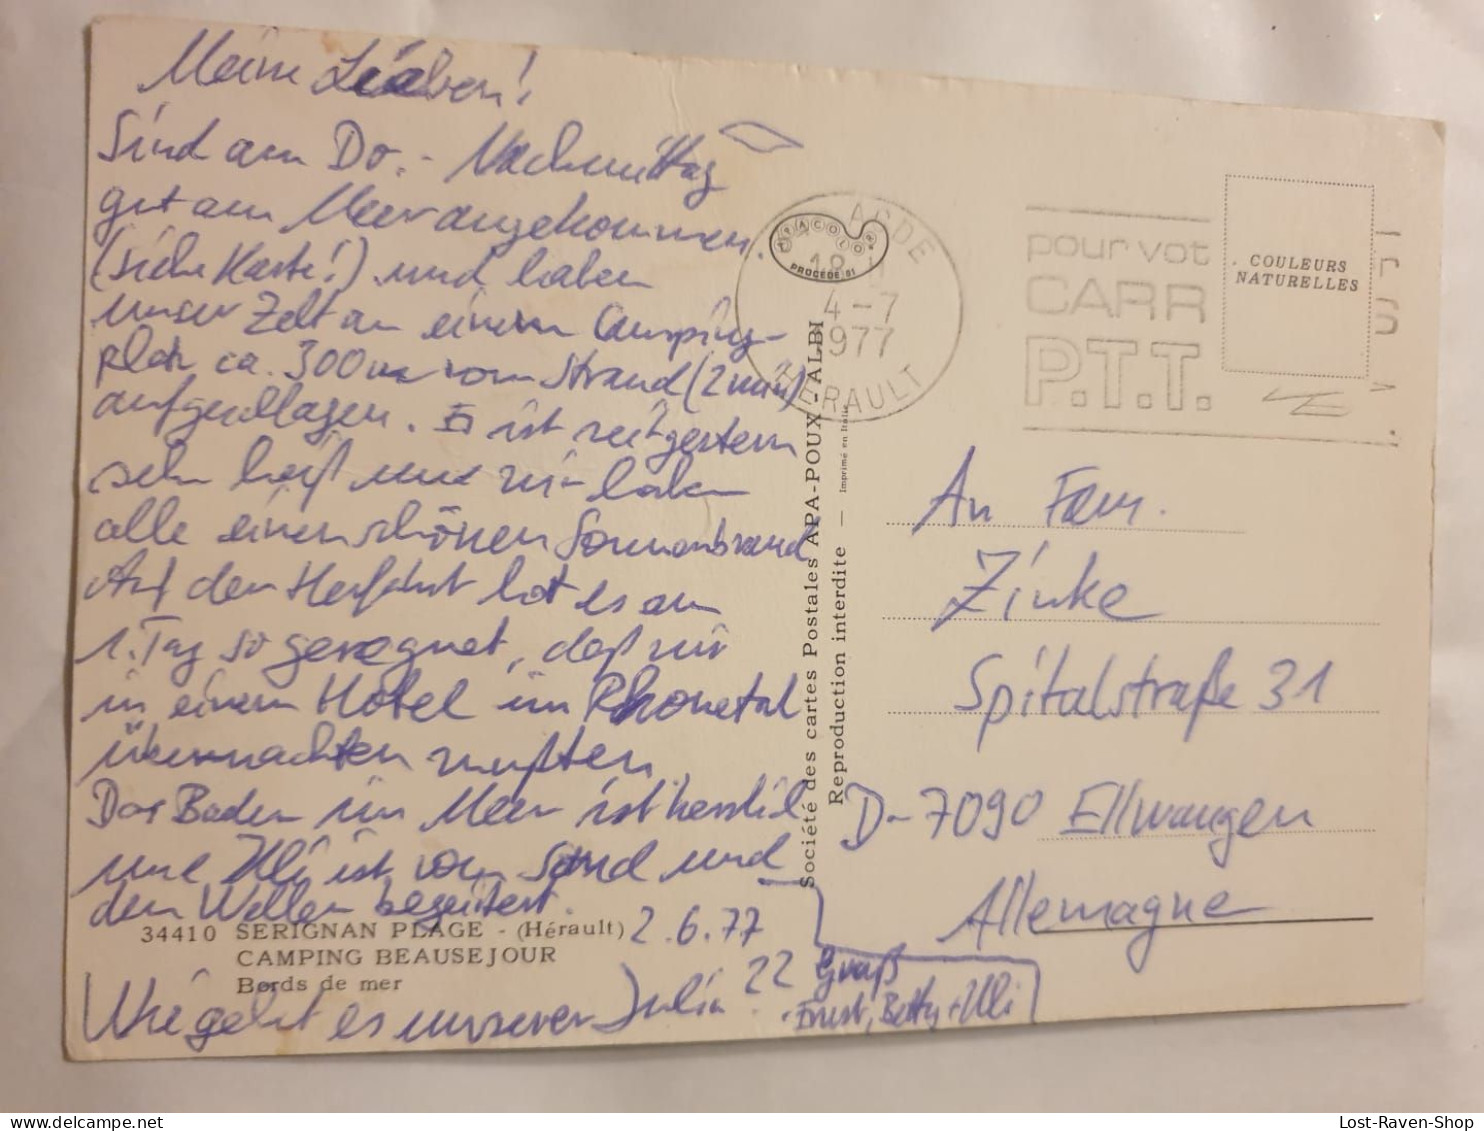 Meine Lieben!
Sind am Do.- Nachmittag
gut am Meer angekommen.
(siehe Karte!) und haben
unser Zelt an einem Camping-
platz ca. 300m vom Strand (2 min)
aufgeschlagen. Es ist seit gestern
sehr heiß und wir haben
alle einen schönen Sonnenbrand
Auf der Herfahrt hat es am
1. Tag so geregnet, daß wir
in einem Hotel im Rhonetal
übernachten mußten.
Das Baden im Meer ist herrlich
und Uli ist vom Sand und
den Wellen begeistert.
34410 SERIGNAN PLAGE - (Hérault)
2.6.77
CAMPING BEAUSEJOUR
Bords de mer
Wie geht es unserer Julia??
Gruß
Ernst, Betty + Uli
APACOLOR
PROCÉDÉ 81
AGDE
18 H
4-7
1977
HERAULT
pour vot
CARR
P.T.T.
COULEURS
NATURELLES
Société des cartes Postales APA-POUX - ALBI
Reproduction interdite — Imprimé en Italie
An Fam.
Zinke
Spitalstraße 31
D-7090 Ellwangen
Allemagne
Lost-Raven-Shop